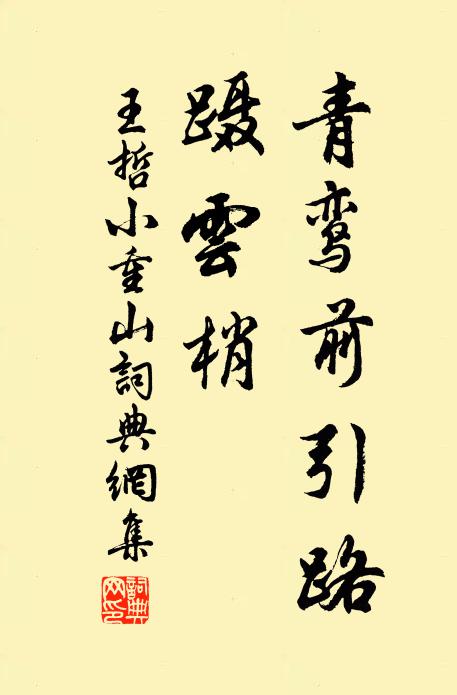 青鸾前引路
蹑雲梢
王哲小重山詞典網集
詞典网印